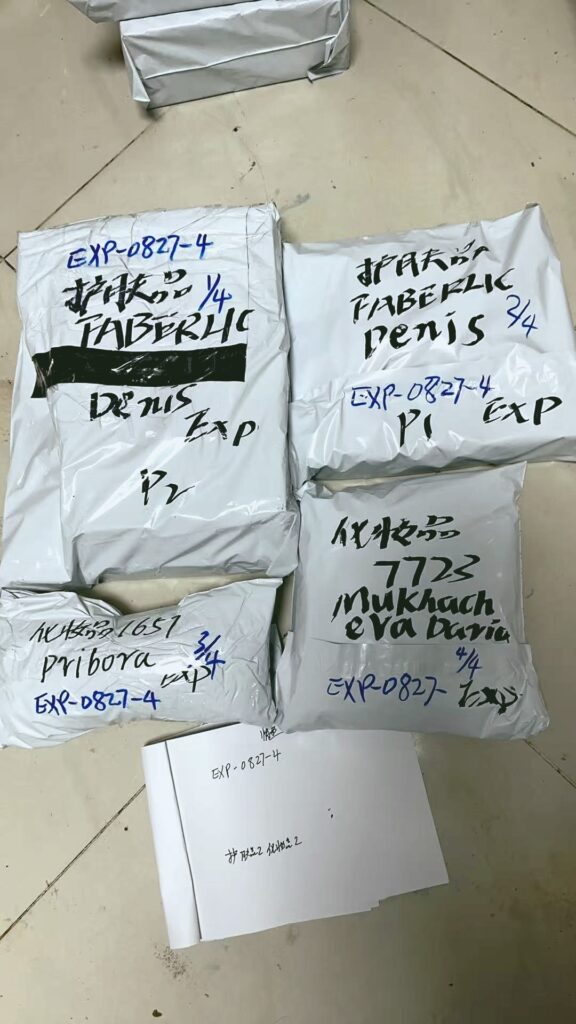 EXP-0827-4
护肤品 1/4
FABERLIC
Denis
Exp
P2
护肤品
FABERLIC
Denis 2/4
EXP-0827-4
P1 EXP
化妆品 1657
Pribora 3/4
Exp
EXP-0827-4
化妆品
7723
Mukhach
eva Daria
4/4
EXP-0827- Exp
EXP-0827-4
护肤品2 化妆品2